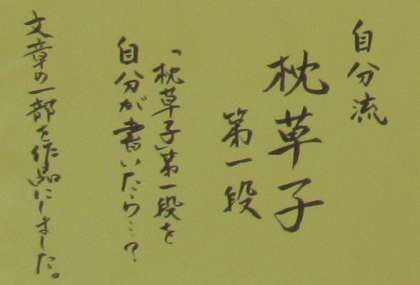 自分流
枕草子
第一段
「枕草子」第一段を
自分が書いたら…?
文章の一部を作品にしました。